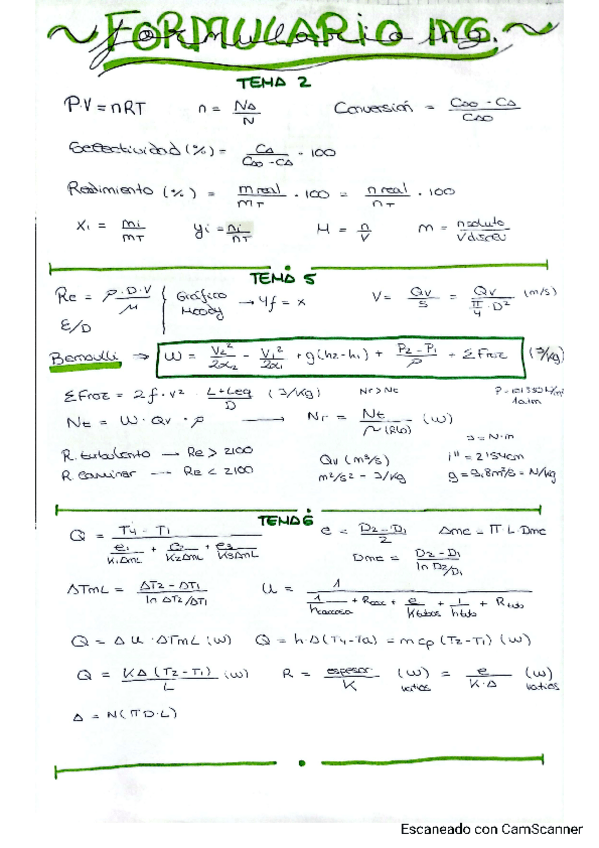 FORMULARIO ING.
TEMA 2
P·V = nRT n = NA/N Conversión = (CA0 - CA)/CA0
Selectividad (%) = CA/(CA0 - CA) · 100
Rendimiento (%) = m real/mT · 100 = n real/nT · 100
Xi = mi/mT yi = ni/nT M = n/V m = n soluto/V disolv
TEMA 5
Re = ρ·D·V/μ Gráfico Moody → 4f = x V = Qv/S = Qv/(π/4 · D²) (m/s)
E/D
Bernoulli → W = V2²/2α2 - V1²/2α1 + g(h2-h1) + (P2-P1)/ρ + ΣFroz (J/kg)
ΣFroz = 2f · v² · (L+Leq)/D (J/kg) Nr > Nt
1 atm
Nt = W · Qv · ρ → Nr = Nt/η (W)
J = N·m
R. turbulento → Re > 2100 Qv (m³/s) 1" = 2'54cm
R. laminar → Re < 2100 m²/s² = J/kg g = 9,8m/s² = N/kg
TEMA 6
Q = (T4 - T1)/(e1/K1AmL + e2/K2AmL + e3/K3AmL) e = (D2 - D1)/2 AmL = π L DmL
DmL = (D2 - D1)/(ln D2/D1)
ΔTmL = (ΔT2 - ΔT1)/(ln ΔT2/ΔT1) U = 1/(1/hcarcasa + Rcarc + e/Ktubos + 1/htub + Rtub)
Q = A U · ΔTmL (W) Q = h·A (T4-Ta) = m cp (T2-T1) (W)
Q = KA (T2-T1)/L (W) R = espesor/K (W) vatios = e/K·A (W) vatios
A = N(π D·L)
Escaneado con CamScanner